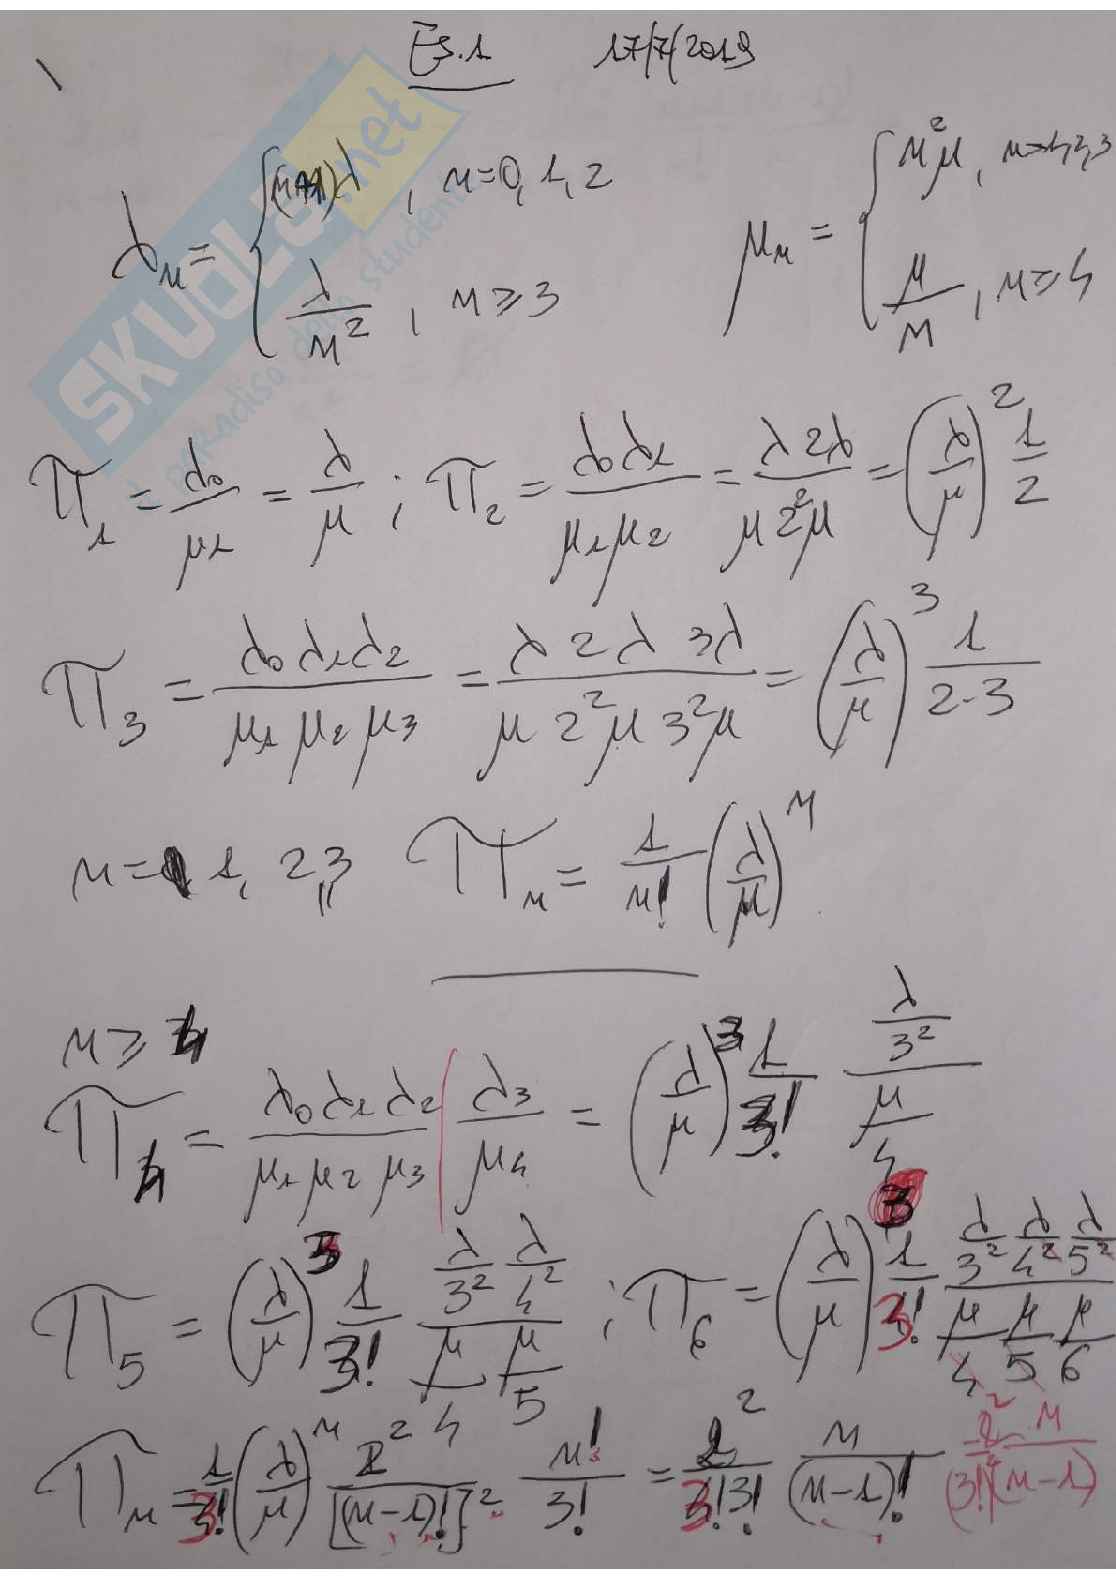 Es.1 17/7/2019
λ_n = { (n+1)λ , n=0, 1, 2
λ/n² , n ≥ 3
μ_n = { n²μ , n=1,2,3
μ/n , n ≥ 4
SKUOLA.net
paradiso degli studenti
Π_1 = λ_0/μ_1 = λ/μ ; Π_2 = λ_0λ_1/μ_1μ_2 = λ2λ/μ2²μ = (λ/μ)² 1/2
Π_3 = λ_0λ_1λ_2/μ_1μ_2μ_3 = λ 2λ 3λ/μ 2²μ 3²μ = (λ/μ)³ 1/2·3
n= 1, 2, 3 Π_n = 1/n! (λ/μ)^n
n ≥ 4
Π_4 = λ_0λ_1λ_2/μ_1μ_2μ_3 | λ_3/μ_4 = (λ/μ)³ 1/3! (λ/3²)/(μ/4)
Π_5 = (λ/μ)³ 1/3! (λ/3² λ/4²)/(μ/4 μ/5) ; Π_6 = (λ/μ)³ 1/3! (λ/3² λ/4² λ/5²)/(μ/4 μ/5 μ/6)
Π_n = 1/3! (λ/μ)^n 2²/[(n-1)!]² n!/3! = 2²/3!3! n/(n-1)! 2²/(3!)² n/(n-1)